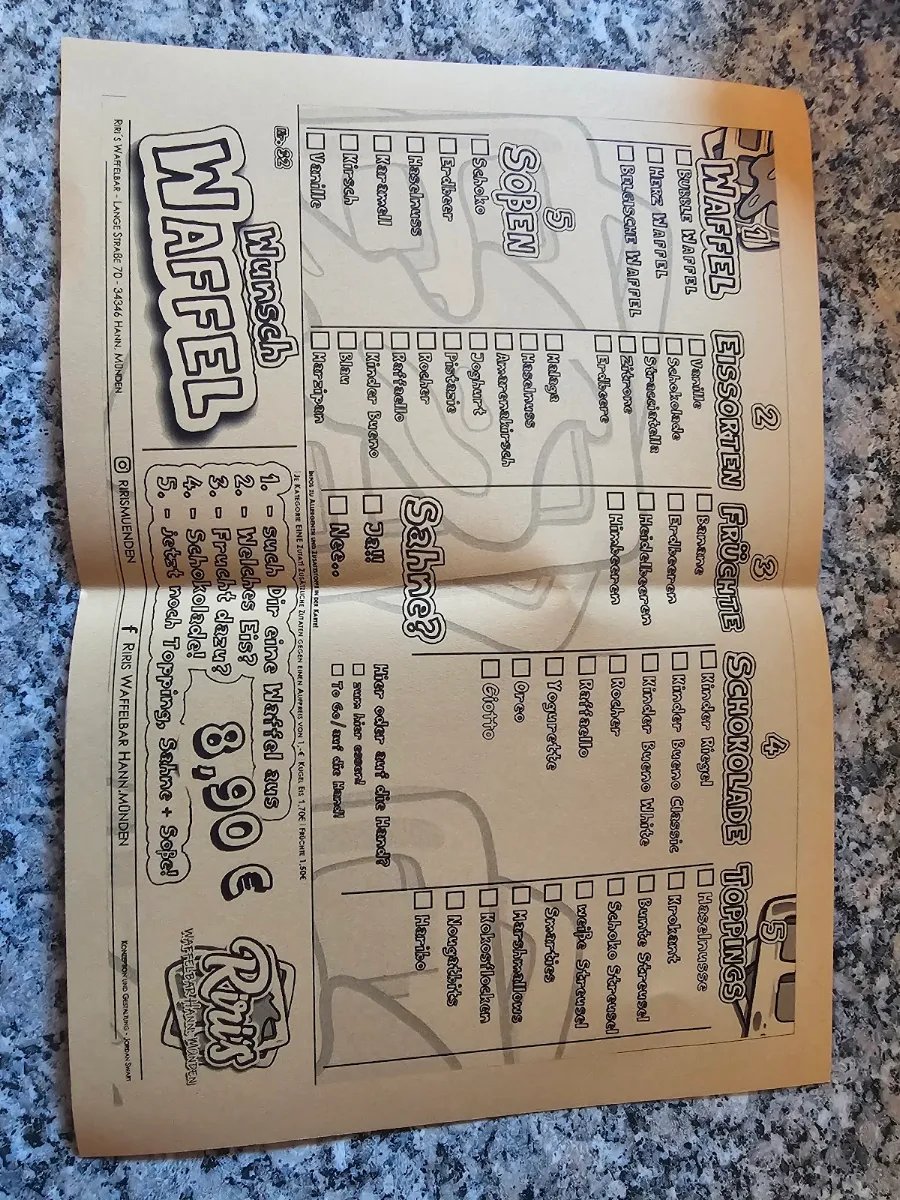 1
WAFFEL
BUBBLE WAFFEL
HERZ WAFFEL
BELGISCHE WAFFEL
2
EISSORTEN
Vanille
Schokolade
Stracciatella
Zitrone
Erdbeere
Malaga
Haselnuss
Amarenakirsch
Joghurt
Pistazie
Rocher
Raffaello
Kinder Bueno
Blau
Marzipan
3
FRÜCHTE
Banane
Erdbeeren
Heidelbeeren
Himbeeren
Sahne?
Ja!!
Nee..
4
SCHOKOLADE
Kinder Riegel
Kinder Bueno Classic
Kinder Bueno White
Rocher
Raffaello
Yogurette
Oreo
Giotto
Hier oder auf die Hand?
zum hier essen!
To Go/auf die Hand!
5
TOPPINGS
Haselnüsse
Krokant
Bunte Streusel
Schoko Streusel
weiße Streusel
Smarties
Marshmallows
Kokosflocken
Nougatbits
Haribo
5
SOßEN
Schoko
Erdbeer
Haselnuss
Karamell
Kirsch
Vanille
INFOS ZU ALLERGENEN UND ZUSATZSTOFFE IN DER KARTE!
!JE KATEGORIE EINE ZUTAT! ZUSÄTZLICHE ZUTATEN GEGEN EINEN AUFPREIS VON 1,-€ KUGEL EIS 1,70€ | FRÜCHTE 1,50€
Nr. 32
Wunsch
WAFFEL
1. - such Dir eine Waffel aus
2. - Welches Eis?
3. - Frucht dazu?
4. - Schokolade!
5. - jetzt noch Topping, Sahne + Soße!
8,90 €
Riri's
WAFFELBAR HANN. MÜNDEN
RIRI'S WAFFELBAR - LANGE STRAßE 70 - 34346 HANN. MÜNDEN
RIRISMUENDEN
RIRIS WAFFELBAR HANN.MÜNDEN
KONZEPTION UND GESTALTUNG - JORDAN SWAIN